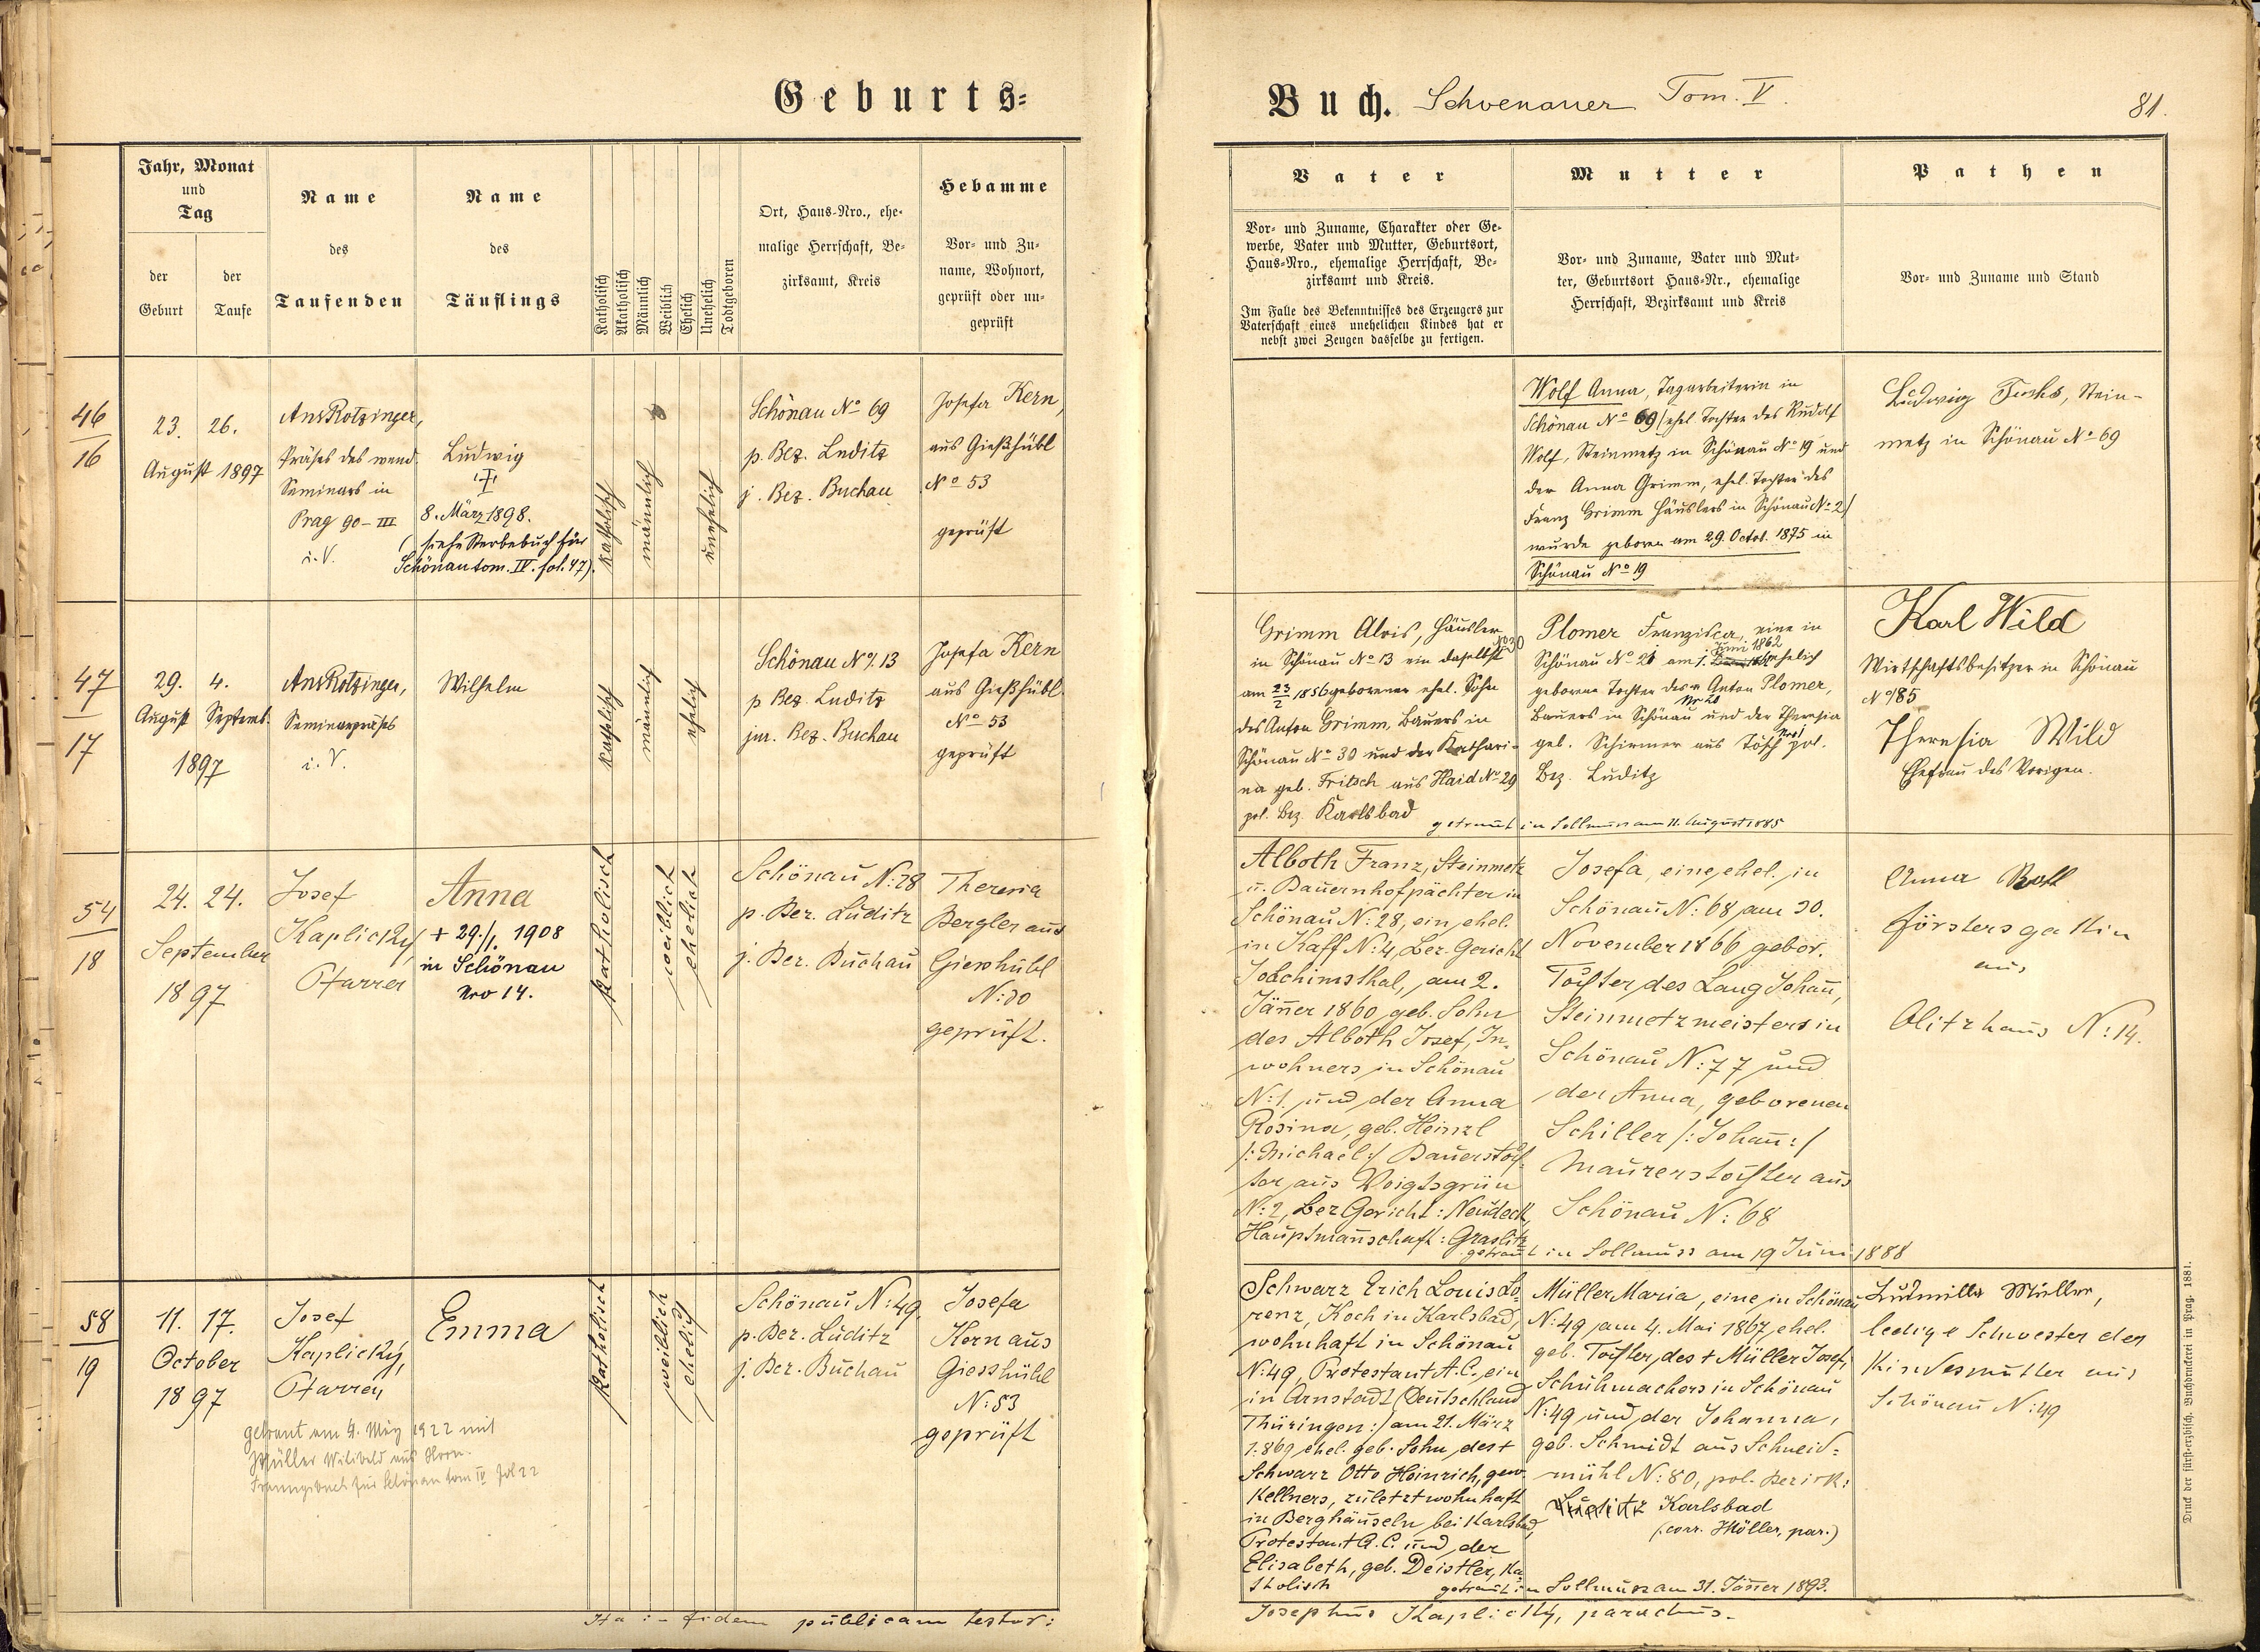 Geburts-
Buch. Schoenauer Tom. V.
81.
Jahr, Monat
und
Tag
der
Geburt
der
Taufe
Name
des
Taufenden
Name
des
Täuflings
Katholisch
Akatholisch
Männlich
Weiblich
Ehelich
Unehelich
Todtgeboren
Ort, Haus-Nro., ehe-
malige Herrschaft, Be-
zirksamt, Kreis
Hebamme
Vor- und Zu-
name, Wohnort,
geprüft oder un-
geprüft
Vater
Vor- und Zuname, Charakter oder Ge-
werbe, Vater und Mutter, Geburtsort,
Haus-Nro., ehemalige Herrschaft, Be-
zirksamt und Kreis.
Im Falle des Bekenntnisses des Erzeugers zur
Vaterschaft eines unehelichen Kindes hat er
nebst zwei Zeugen dasselbe zu fertigen.
Mutter
Vor- und Zuname, Vater und Mut-
ter, Geburtsort Haus-Nr., ehemalige
Herrschaft, Bezirksamt und Kreis
Pathen
Vor- und Zuname und Stand
46
16
23. 26.
August 1897
Ant Rotzinger,
Präses des wend.
Seminars in
Prag 90-III
i. V.
Ludwig
8. März 1898.
(siehe Sterbebuch für
Schönau tom. IV. fol. 47).
katholisch
männlich
unehelich
Schönau No 69
p. Bez. Luditz
j. Bez. Buchau
Josefa Kern,
aus Gießhübl
No 53
geprüft
Wolf Anna, Tagarbeiterin in
Schönau No 69 (ehel. Tochter des Rudolf
Wolf, Steinmetz in Schönau No 19 und
der Anna Grimm, ehel. Tochter des
Franz Grimm Häuslers in Schönau No 2)
wurde geboren am 29. Octob. 1875 in
Schönau No 19
Ludwig Fuchs, Stein-
metz in Schönau No 69
47
17
29. 4.
August Septemb.
1897
Ant Rotzinger,
Seminarpräses
i. V.
Wilhelm
katholisch
männlich
ehelich
Schönau No 13
p Bez. Luditz
jur. Bez. Buchau
Josefa Kern
aus Gießhübl
No 53
geprüft
Grimm Alois, Häusler
in Schönau No 13 ein daselbst No 30
am 23/2 1856 geborener ehel. Sohn
des Anton Grimm, Bauers in
Schönau No 30 und der Kathari-
na geb. Fritsch aus Haid No 29
pol. Bez. Karlsbad
Plomer Franziska, eine in
Juni 1862
Schönau No 21 am 1. ehelich
geborene Tochter des Anton Plomer,
Nr 20
Bauers in Schönau und der Theresia
geb. Schirmer aus Tösch Nr 1 pol.
Bez. Luditz
getraut in Sollmus am 11. August 1885
Karl Wild
Wirtschaftsbesitzer in Schönau
No 85
Theresia Wild
Ehefrau des Vorigen.
54
18
24. 24.
September
1897
Josef
Kaplicky,
Pfarrer
Anna
+ 29./1. 1908
in Schönau
Nro 14.
katholisch
weiblich
ehelich
Schönau N: 28
p. Bez. Luditz
j. Bez. Buchau
Theresia
Bergler aus
Giesshübl
N: 30
geprüft.
Alboth Franz, Steinmetz
u. Bauernhofpächter in
Schönau N: 28, ein ehel.
in Kaff N: 4, Bez. Gericht
Joachimsthal, am 2.
Jänner 1860 geb. Sohn
des Alboth Josef, In-
wohners in Schönau
N: 1. und der Anna
Rosina, geb. Heinzl
/: Michael :/ Bauerstoch-
ter aus Voigtsgrün
N: 2, Bez Gericht: Neudeck,
Hauptmannschaft: Graslitz
Josefa, eine ehel. in
Schönau N: 68, am 30.
November 1866 gebor.
Tochter des Lang Johann,
Steinmetzmeisters in
Schönau N: 77 und
der Anna, geborenen
Schiller /: Johann :/
Maurerstochter aus
Schönau N: 68
getraut in Sollmuss am 19 Juni 1888
Anna Roth
Förstersgattin
aus
Olitzhaus N: 14.
58
19
11. 17.
October
1897
Josef
Kaplicky,
Pfarrer
Emma
getraut am 4. May 1922 mit
Müller Wilibald aus Horn.
Trauungsbuch für Schönau tom IV fol 22
katholisch
weiblich
ehelich
Schönau N: 49
p. Bez. Luditz
j. Bez. Buchau
Josefa
Kern aus
Giesshübl
N: 53
geprüft
Schwarz Erich Louis Lo-
renz, Koch in Karlsbad,
wohnhaft in Schönau
N: 49, Protestant A. C., ein
in Arnstadt (Deutschland
Thüringen:/ am 21. März
1869 ehel. geb. Sohn des +
Schwarz Otto Heinrich, gew.
Kellners, zuletzt wohnhaft
in Berghäuseln bei Karlsbad,
Protestant A. C. und der
Elisabeth, geb. Deistler, ka-
tholisch
Müller Maria, eine in Schönau
N: 49 am 4. Mai 1867, ehel.
geb. Tochter des + Müller Josef,
Schuhmachers in Schönau
N: 49 und der Johanna,
geb. Schmidt aus Schneid-
mühl N: 80, pol. Bezirk:
Luditz Karlsbad
(corr. Höller, par.)
getraut in Sollmuss am 31. Jänner 1893.
Ludmilla Müller,
ledige Schwester der
Kindesmutter aus
Schönau N: 49
Ita :- fidem publicam testor:
Josephus Kaplicky, parochus.
Druck der fürst-erzbisch. Buchdruckerei in Prag. 1881.